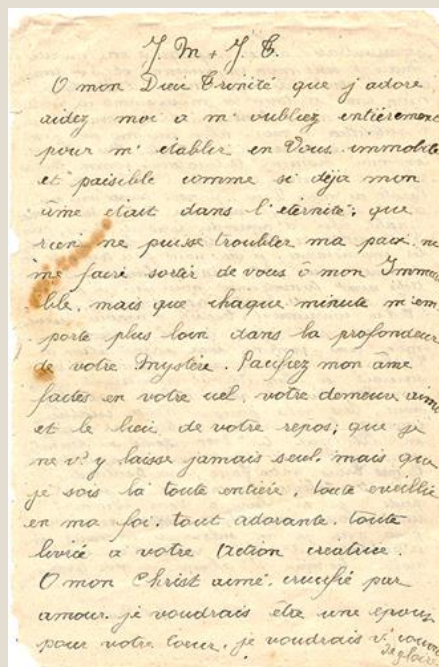 J. M + J. T.
O mon Dieu Trinité que j'adore
aidez moi a m'oubliez entièrement
pour m'etablir en Vous immobile
et paisible comme si déja mon
âme etait dans l'eternité; que
rien ne puisse troubler ma paix ni
me faire sortir de vous ô mon Immua
ble. mais que chaque minute m'em
porte plus loin dans la profondeur
de votre Mystère. Pacifiez mon âme
faites en votre ciel. votre demeure aimée
et le lieu de votre repos; que je
ne vs y laisse jamais seul. mais que
je sois là toute entière, toute eveillée
en ma foi. tout adorante. toute
livrée a votre Action créatrice.
O mon Christ aimé. crucifié par
amour. je voudrais être une epouse
pour votre Coeur. je voudrais vs couvrir
de gloire